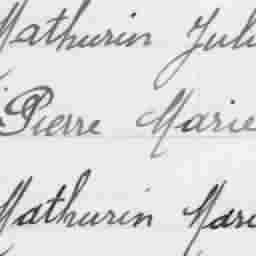 Mathurin Juli
Pierre Marie
Mathurin Mari